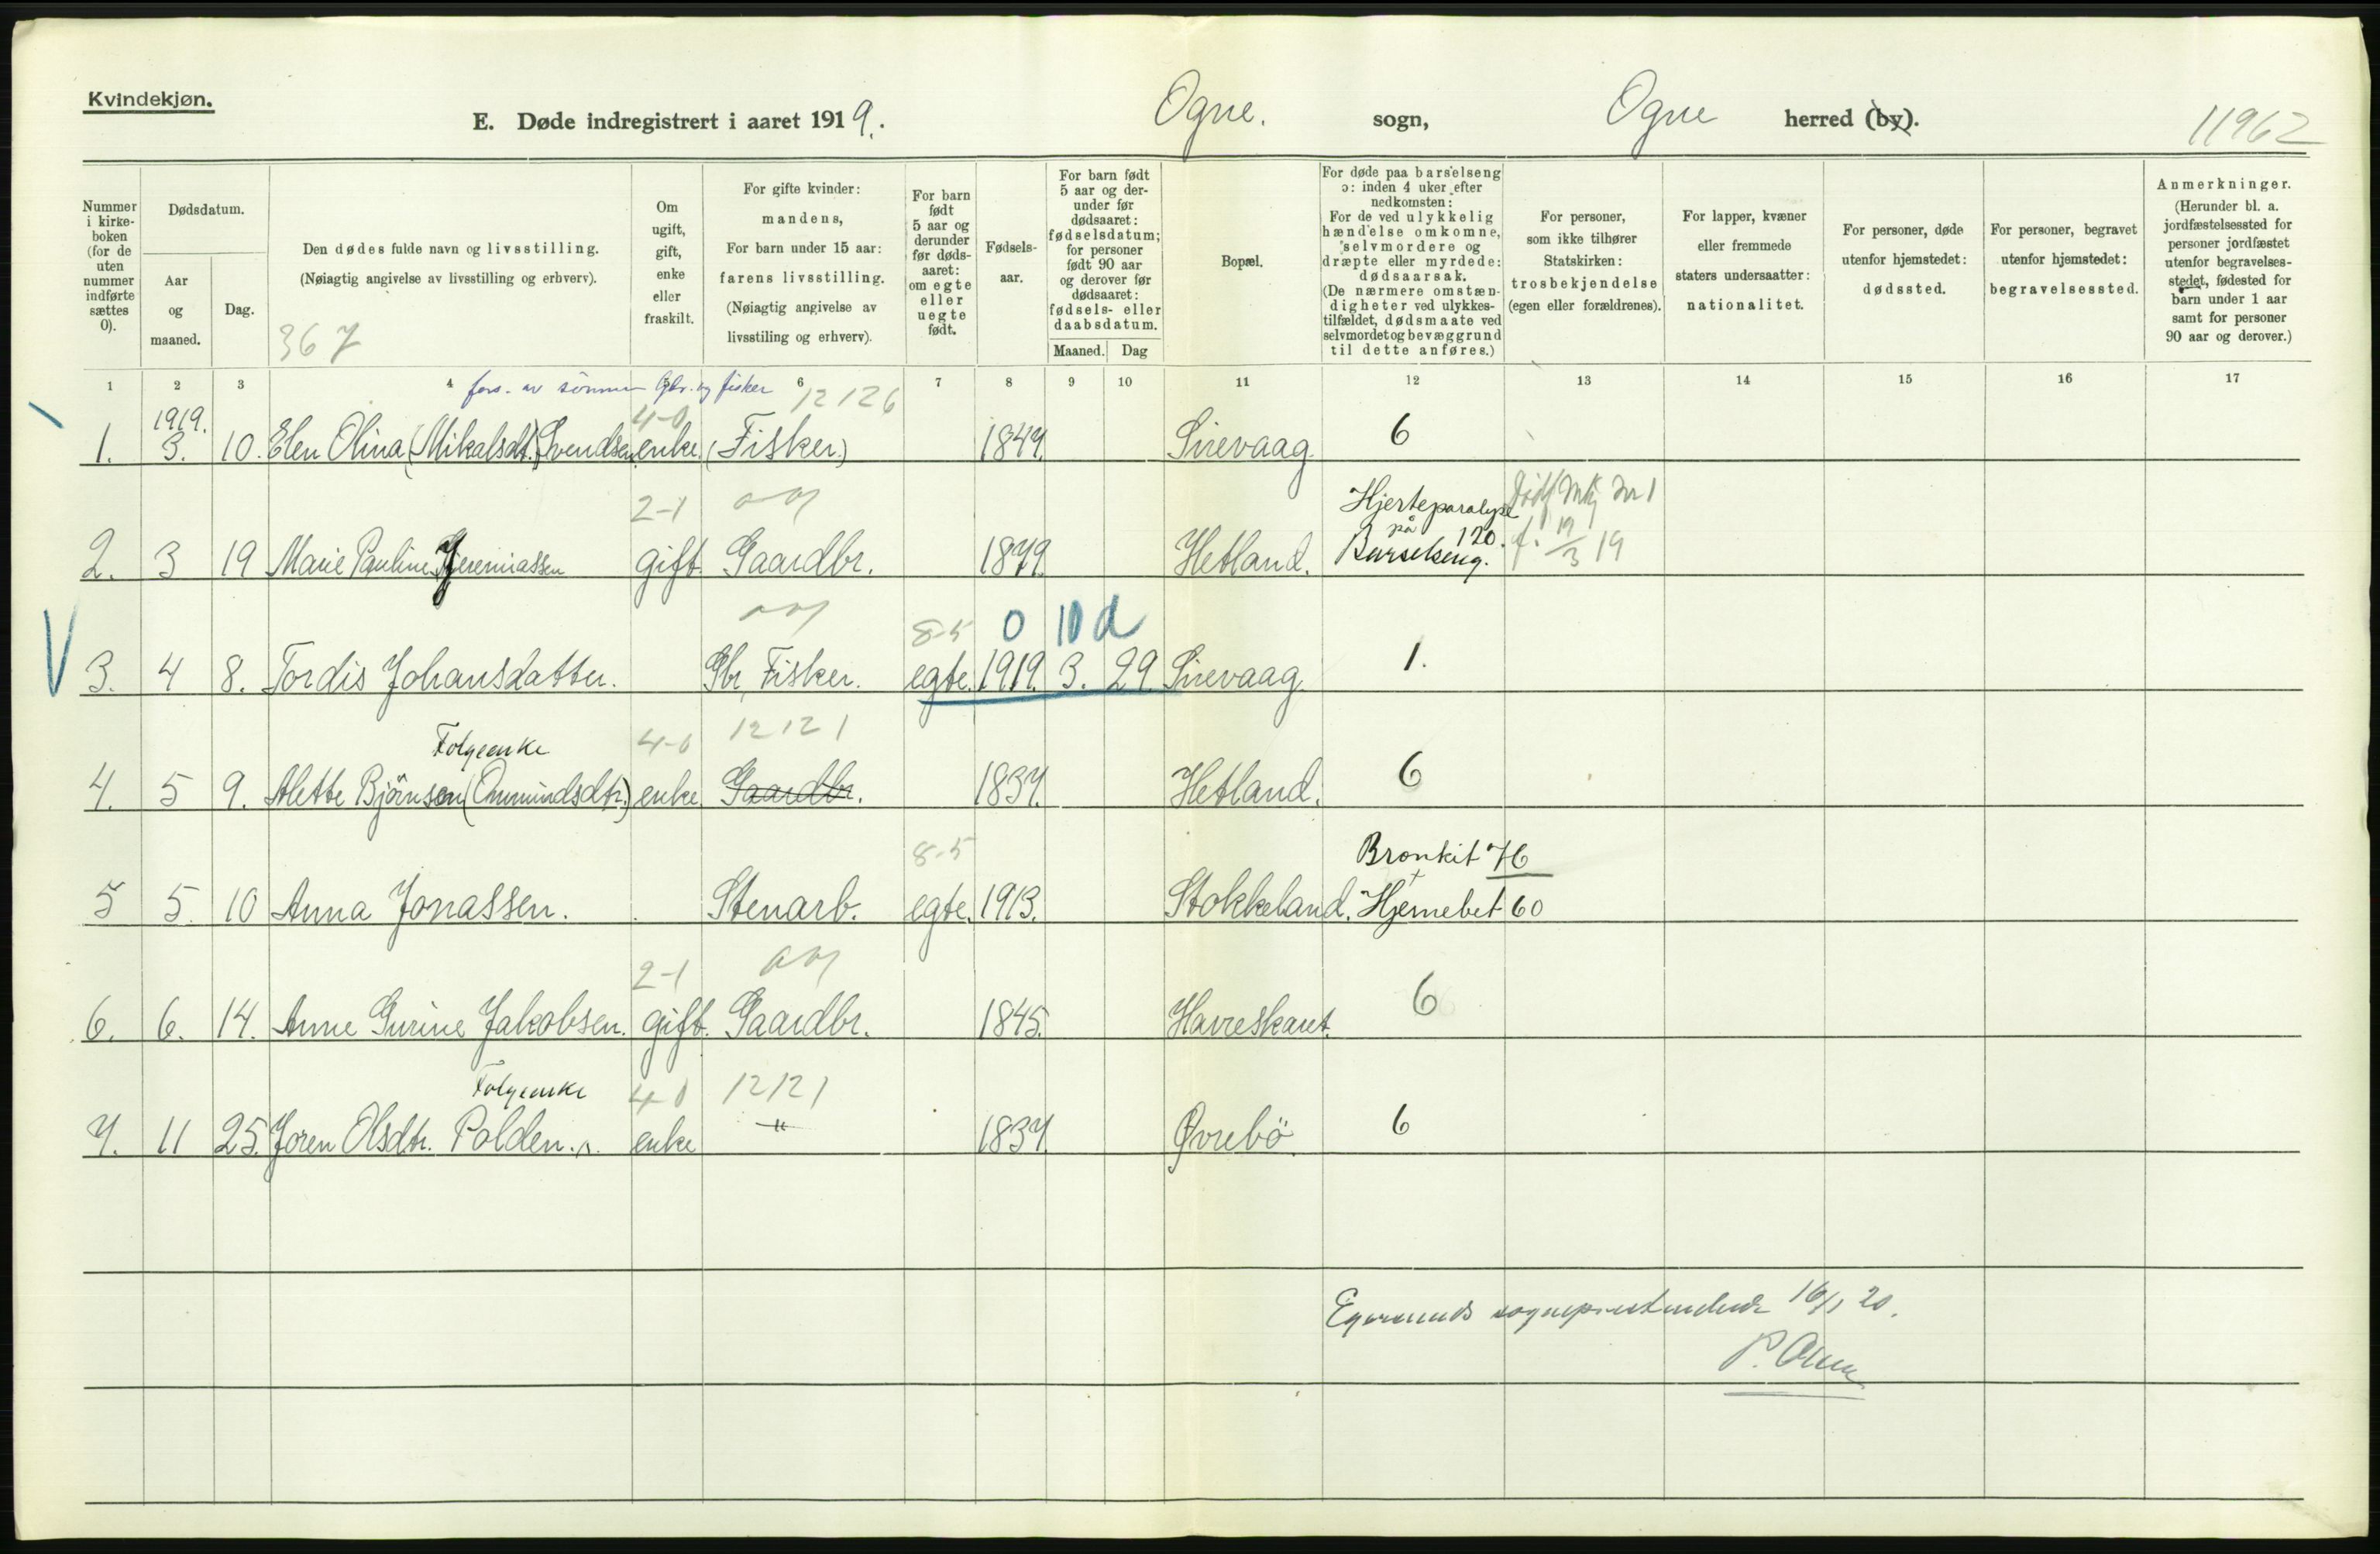 Kvindekjøn.
E. Døde indregistrert i aaret 1919. Ogne. sogn, Ogne herred (by).
11962
Nummer i kirke-boken (for de uten nummer indførte sættes 0).
Dødsdatum.
Aar og maaned.
Dag.
Den dødes fulde navn og livsstilling.
(Nøiagtig angivelse av livsstilling og erhverv).
367
Om ugift, gift, enke eller fraskilt.
For gifte kvinder: mandens,
For barn under 15 aar: farens livsstilling.
(Nøiagtig angivelse av livsstiling og erhverv).
For barn født 5 aar og derunder før døds-aaret: om egte eller uegte født.
Fødsels-aar.
For barn født 5 aar og der-under før dødsaaret: fødselsdatum; for personer født 90 aar og derover før dødsaaret: fødsels- eller daabsdatum.
Maaned. Dag
Bopæl.
For døde paa barselseng ɔ: inden 4 uker efter nedkomsten:
For de ved ulykkelig hændelse omkomne, selvmordere og dræpte eller myrdede: dødsaarsak.
(De nærmere omstæn-digheter ved ulykkes-tilfældet, dødsmaate ved selvmordet og bevæggrund til dette anføres.)
For personer, som ikke tilhører Statskirken: trosbekjendelse (egen eller forældrenes).
For lapper, kvæner eller fremmede staters undersaatter: nationalitet.
For personer, døde utenfor hjemstedet: dødssted.
For personer, begravet utenfor hjemstedet: begravelsessted.
Anmerkninger.
(Herunder bl. a. jordfæstelsessted for personer jordfæstet utenfor begravelses-stedet, fødested for barn under 1 aar samt for personer 90 aar og derover.)
1 2 3 4 5 6 7 8 9 10 11 12 13 14 15 16 17
fors. av sönnen Gbr. og fisker 12126
1919. 4-0
1. 3. 10. Elen Olina (Mikalsdt.) Svendsen enke (Fisker) 1847. Sirevaag. 6
2-1 Hjerteparalyse
på 120.
2. 3 19 Marie Pauline Jeremiassen gift. Gaardbr. 1879. Hetland. Barselseng. f. 19/3 19
8-5 0 10 d
3. 4 8. Tordis Johansdatter. Gbr, Fisker. egte. 1919. 3. 29. Sirevaag. 1.
Folgeenke 4-0 12121
4. 5 9. Alette Björnsen (Ommundsdtr.) enke. Gaardbr. 1837. Hetland. 6
8-5 Bronkit 76
5 5. 10 Anna Jonassen. Stenarb. egte. 1913. Stokkeland. Hjernebet 60
2-1
6. 6. 14. Anne Gurine Jakobsen. gift. Gaardbr. 1845. Havreskaret. 6
Folgeenke 4-0 12121
7. 11 25. Joren Olsdtr. Polden. enke " 1837. Øvrebö. 6
Egersunds sogneprestembede 16/1 20.